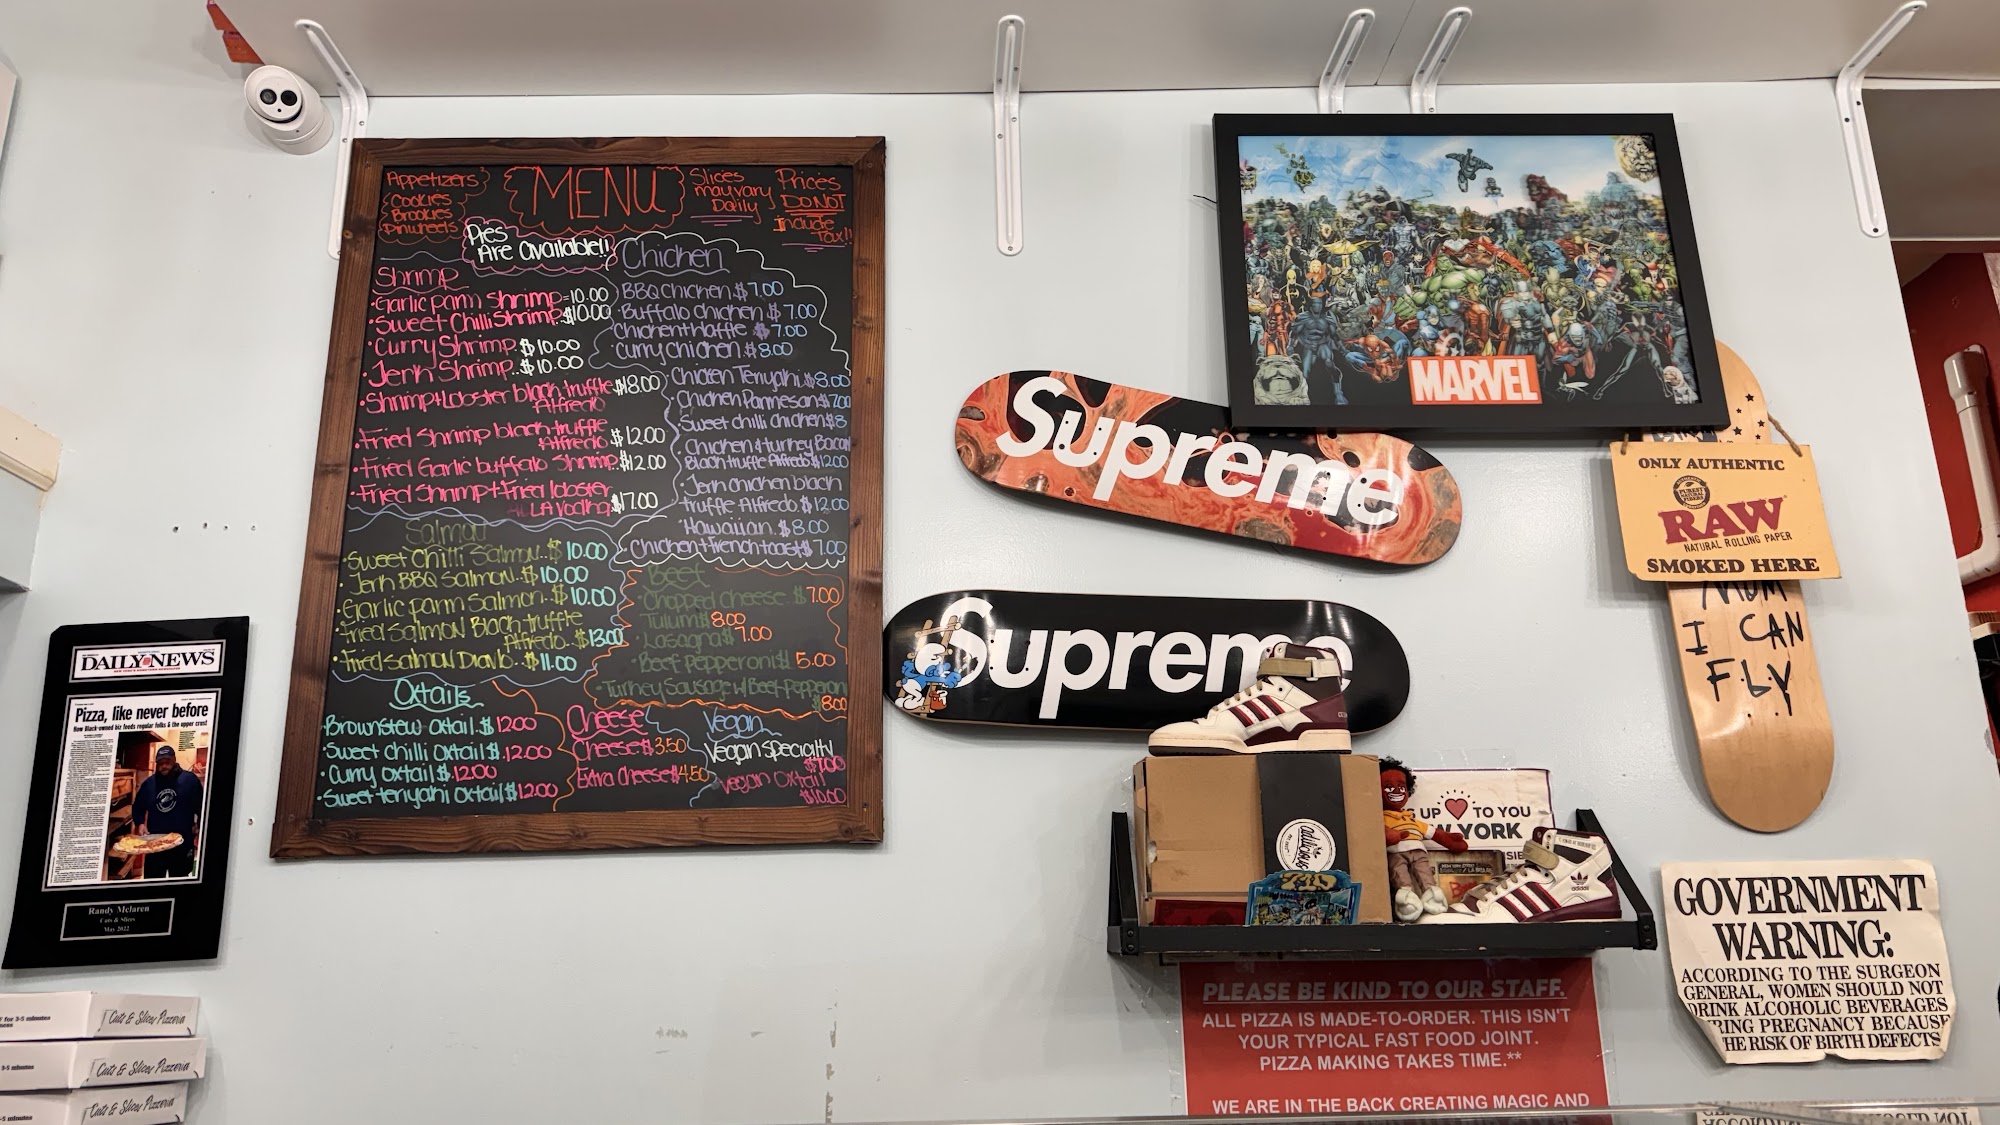 Appetizers
Cookies
Brookies
Pinwheels
MENU
Slices
may vary
Daily
Prices
DO NOT
include
Tax!!
Pies
Are available!!
Shrimp
•Garlic parm Shrimp=10.00
•Sweet Chilli Shrimp.$10.00
•Curry Shrimp.$10.00
•Jerk Shrimp..$10.00
•Shrimp+Lobster black truffle $18.00
Alfredo
•Fried Shrimp black truffle
Alfredo $12.00
•Fried Garlic buffalo Shrimp.$12.00
•Fried Shrimp+Fried lobster
ALA Vodka $17.00
Chicken
BBQ chicken.$7.00
•Buffalo chicken $7.00
Chicken+Waffle $7.00
•Curry chicken.$8.00
•Chicken Teriyaki.$8.00
•Chicken Parmesan$7.00
•Sweet chilli chicken$8
•Chicken+turkey Bacon
Black truffle Alfredo$12.00
•Jerk chicken black
truffle Alfredo.$12.00
•Hawaiian.$8.00
•Chicken+French toast$7.00
Salmon
•Sweet Chilli Salmon..$10.00
•Jerk BBQ Salmon..$10.00
•Garlic parm Salmon.$10.00
•Fried Salmon Black truffle
Alfredo..$13.00
•Fried Salmon Diavlo..$11.00
Beef
•Chopped cheese.$7.00
•Tulum$8.00
•Lasagna$7.00
•Beef Pepperoni$5.00
•Turkey Sausage w/Beef Pepperoni
$8.00
Oxtails
Brownstew oxtail.$12.00
•Sweet chilli Oxtail$.12.00
•Curry oxtail$.12.00
•Sweet teriyaki Oxtail$12.00
Cheese
Cheese$3.50
Extra Cheese$4.50
Vegan
Vegan specialty
Vegan Oxtail
$10.00
DAILY NEWS
Pizza, like never before
How Black-owned biz feeds regular folks & the upper crust
Randy Mclaren
Cuts & Slices
May 2022
for 3-5 minutes
Cuts & Slices Pizzeria
3-5 minutes
Cuts & Slices Pizzeria
Cuts & Slices Pizzeria
MARVEL
Supreme
Supreme
ONLY AUTHENTIC
RAW
NATURAL ROLLING PAPER
SMOKED HERE
MOM
I CAN
FLY
adilicious
UP TO YOU
YORK
adidas
PLEASE BE KIND TO OUR STAFF.
ALL PIZZA IS MADE-TO-ORDER. THIS ISN'T
YOUR TYPICAL FAST FOOD JOINT.
PIZZA MAKING TAKES TIME.**
WE ARE IN THE BACK CREATING MAGIC AND
GOVERNMENT
WARNING:
ACCORDING TO THE SURGEON
GENERAL, WOMEN SHOULD NOT
DRINK ALCOHOLIC BEVERAGES
RING PREGNANCY BECAUSE
HE RISK OF BIRTH DEFECTS